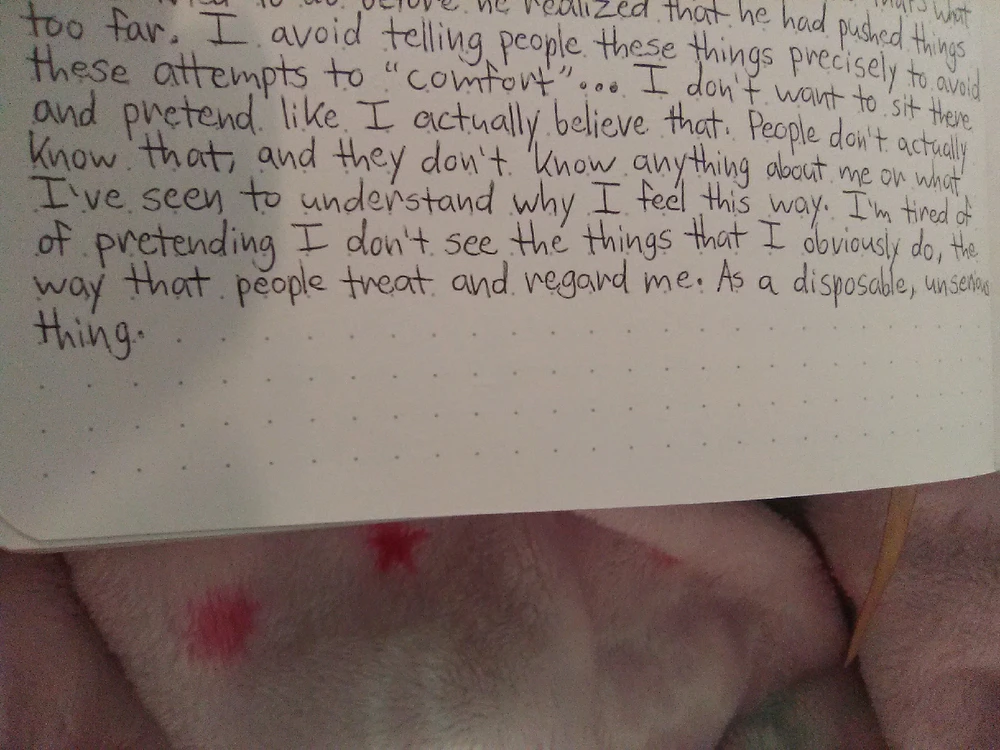 before he realized that he had pushed things
too far. I avoid telling people these things precisely to avoid
these attempts to "comfort"... I don't want to sit there
and pretend like I actually believe that. People don't actually
know that, and they don't know anything about me or what
I've seen to understand why I feel this way. I'm tired of
of pretending I don't see the things that I obviously do, the
way that people treat and regard me. As a disposable,
thing.